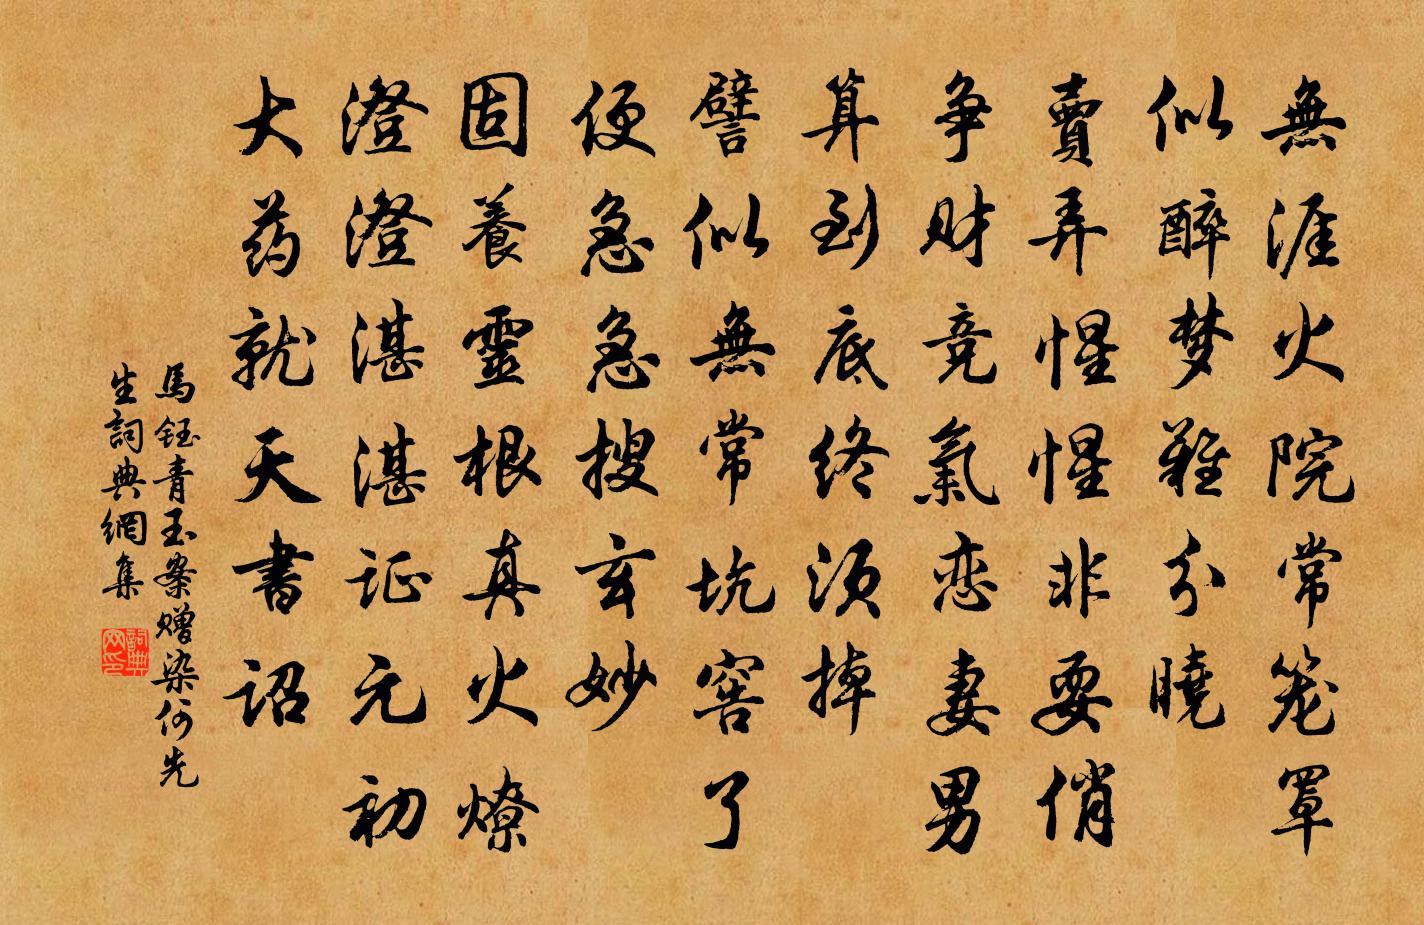 無涯火院常笼罩
似醉梦難分曉
賣弄惺惺非耍俏
争财竞氣恋妻男
算到底终须掉
譬似無常坑窖了
便急急搜玄妙
固養靈根真火燎
澄澄湛湛证元初
大药就天书诏
馬鈺青玉案赠染何先
生詞典網集
詞典网印